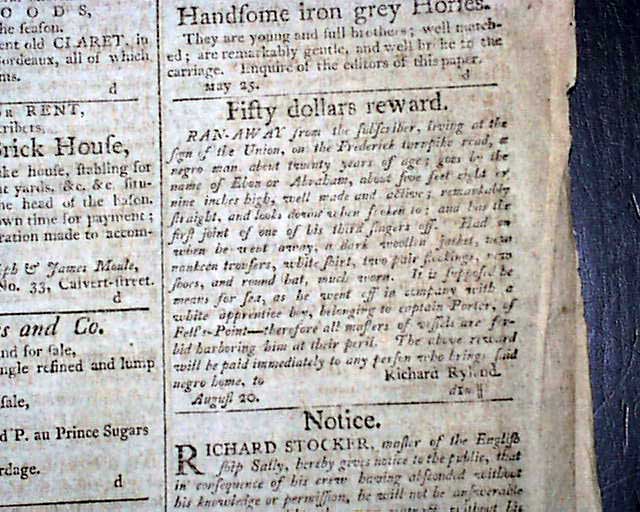 OODS,
he season.
ent old CLARET, in
Bordeaux, all of which
ms.
d
OR RENT,
cribers,
Brick House,
ke house, stabling for
t yards, &c. &c. situ-
he head of the bason.
own time for payment;
ration made to accom-
ph & James Moale,
No. 33, Calvert-street.
d
s and Co.
nd for sale,
ngle refined and lump
sale,
d P. au Prince Sugars
rdage.
d
Handſome iron grey Horſes.
They are young and full brothers; well match-
ed; are remarkably gentle, and well broke to the
carriage. Enquire of the editors of this paper.
May 25. d
Fifty dollars reward.
RAN-AWAY from the ſubſcriber, living at the
ſign of the Union, on the Frederick turnpike road, a
negro man, about twenty years of age; goes by the
name of Ebon or Abraham, about five feet eight or
nine inches high, well made and active; remarkably
ſtraight, and looks down when ſpoken to; and has the
firſt joint of one of his third fingers off. Had on
when he went away, a dark woollen jacket, new
nankeen trouſers, white ſhirt, two pair ſtockings, new
ſhoes, and round hat, much worn. It is ſuppoſed he
means for ſea, as he went off in company with a
white apprentice boy, belonging to captain Porter, of
Fell's-Point—therefore all maſters of veſſels are for-
bid harboring him at their peril. The above reward
will be paid immediately to any perſon who brings ſaid
negro home, to Richard Ryland.
Auguſt 20.
Notice.
RICHARD STOCKER, maſter of the Engliſh
ſhip Sally, hereby gives notice to the public, that
in conſequence of his crew having abſconded without
his knowledge or permiſſion, he will not be anſwerable